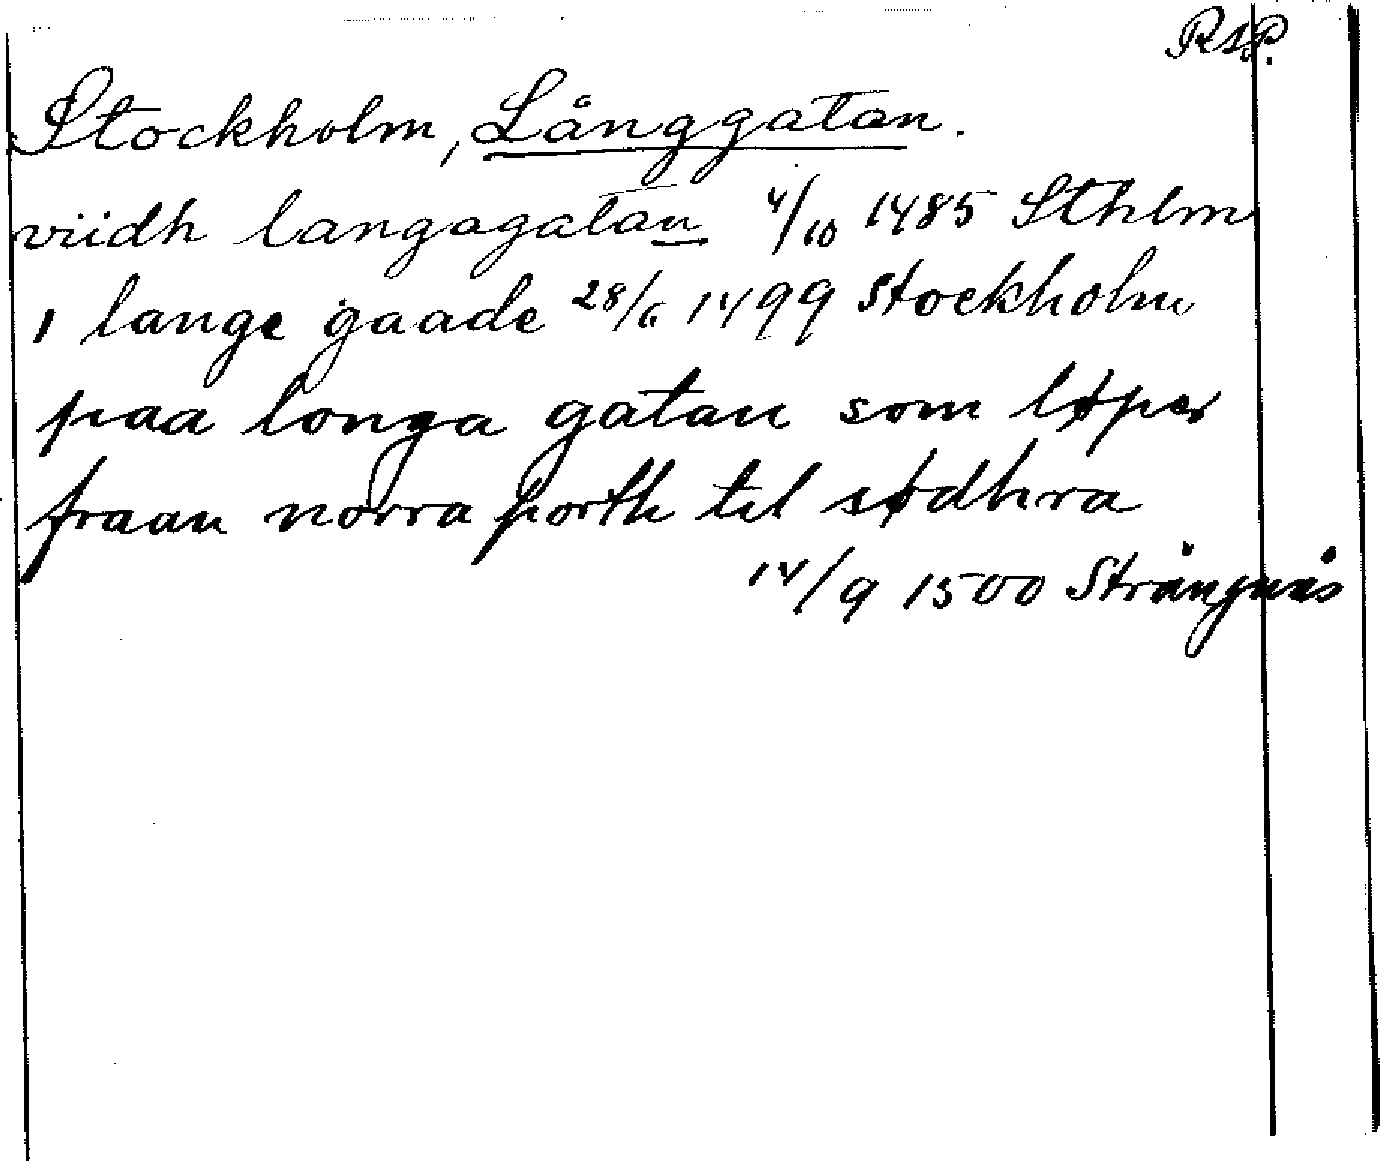 RAP.
Stockholm, Långgatan.
viidh langagatan 4/10 1485 Sthlm
i lange gaade 28/6 1499 Stockholm
paa longa gatan som løper
fraan norra porth til sødhra
14/9 1500 Strängnäs